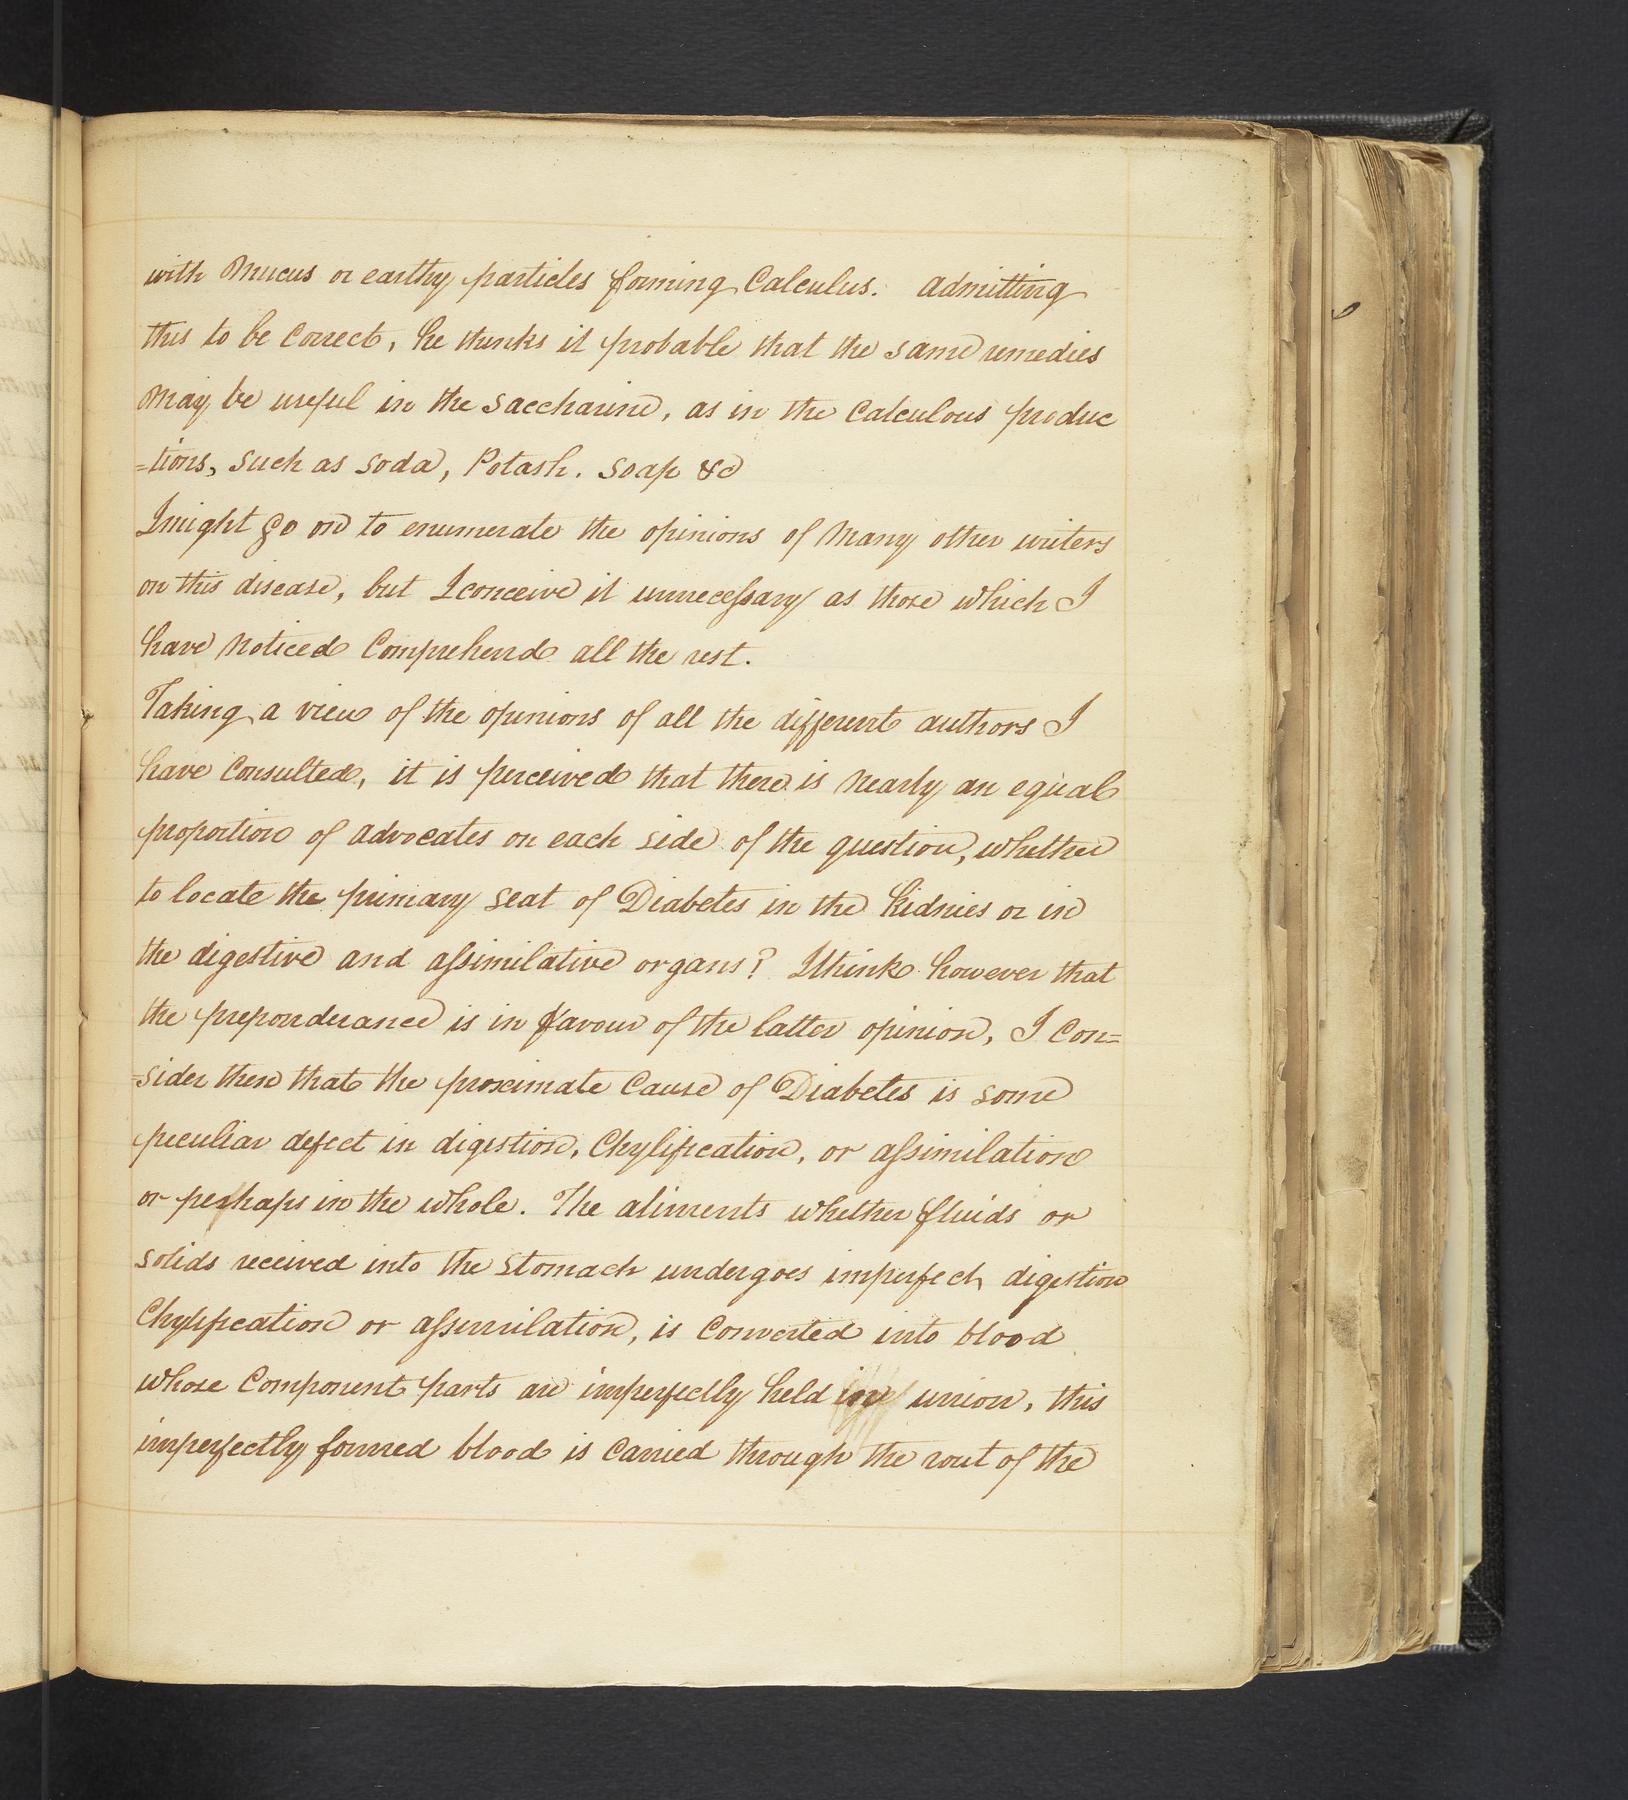 with Mucus or earthy particles forming Calculus. admitting
this to be Correct, he thinks it probable that the same remedies
May be useful in the Saccharine, as in the Calculous produc
=tions, such as soda, Potash. soap &c
I might go on to enumerate the opinions of Many other writers
on this disease, but I conceive it unnecessary as those which I
have Noticed Comprehend all the rest.
Taking a view of the opinions of all the different authors I
have Consulted, it is perceived that there is Nearly an equal
proportion of advocates on each side of the question, whether
to locate the primary seat of Diabetes in the Kidnies or in
the digestive and assimilative organs? I think however that
the preponderance is in favour of the latter opinion, I Con=
=sider then that the proximate Cause of Diabetes is some
peculiar defect in digestion, Chylification, or assimilation
or perhaps in the whole. The aliments whether fluids or
solids received into the Stomach undergoes imperfect digestion
Chylification or assimilation, is Converted into blood
whose Component parts are imperfectly held in union, this
imperfectly formed blood is Carried through the rout of the